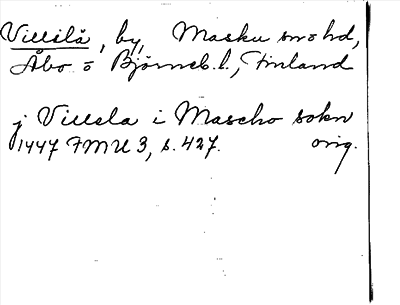 Villilä, by, Masku sn o hd,
Åbo o Björneb. l., Finland
j Villela i Mascho sokn
1447 FMU 3, s. 427. orig.